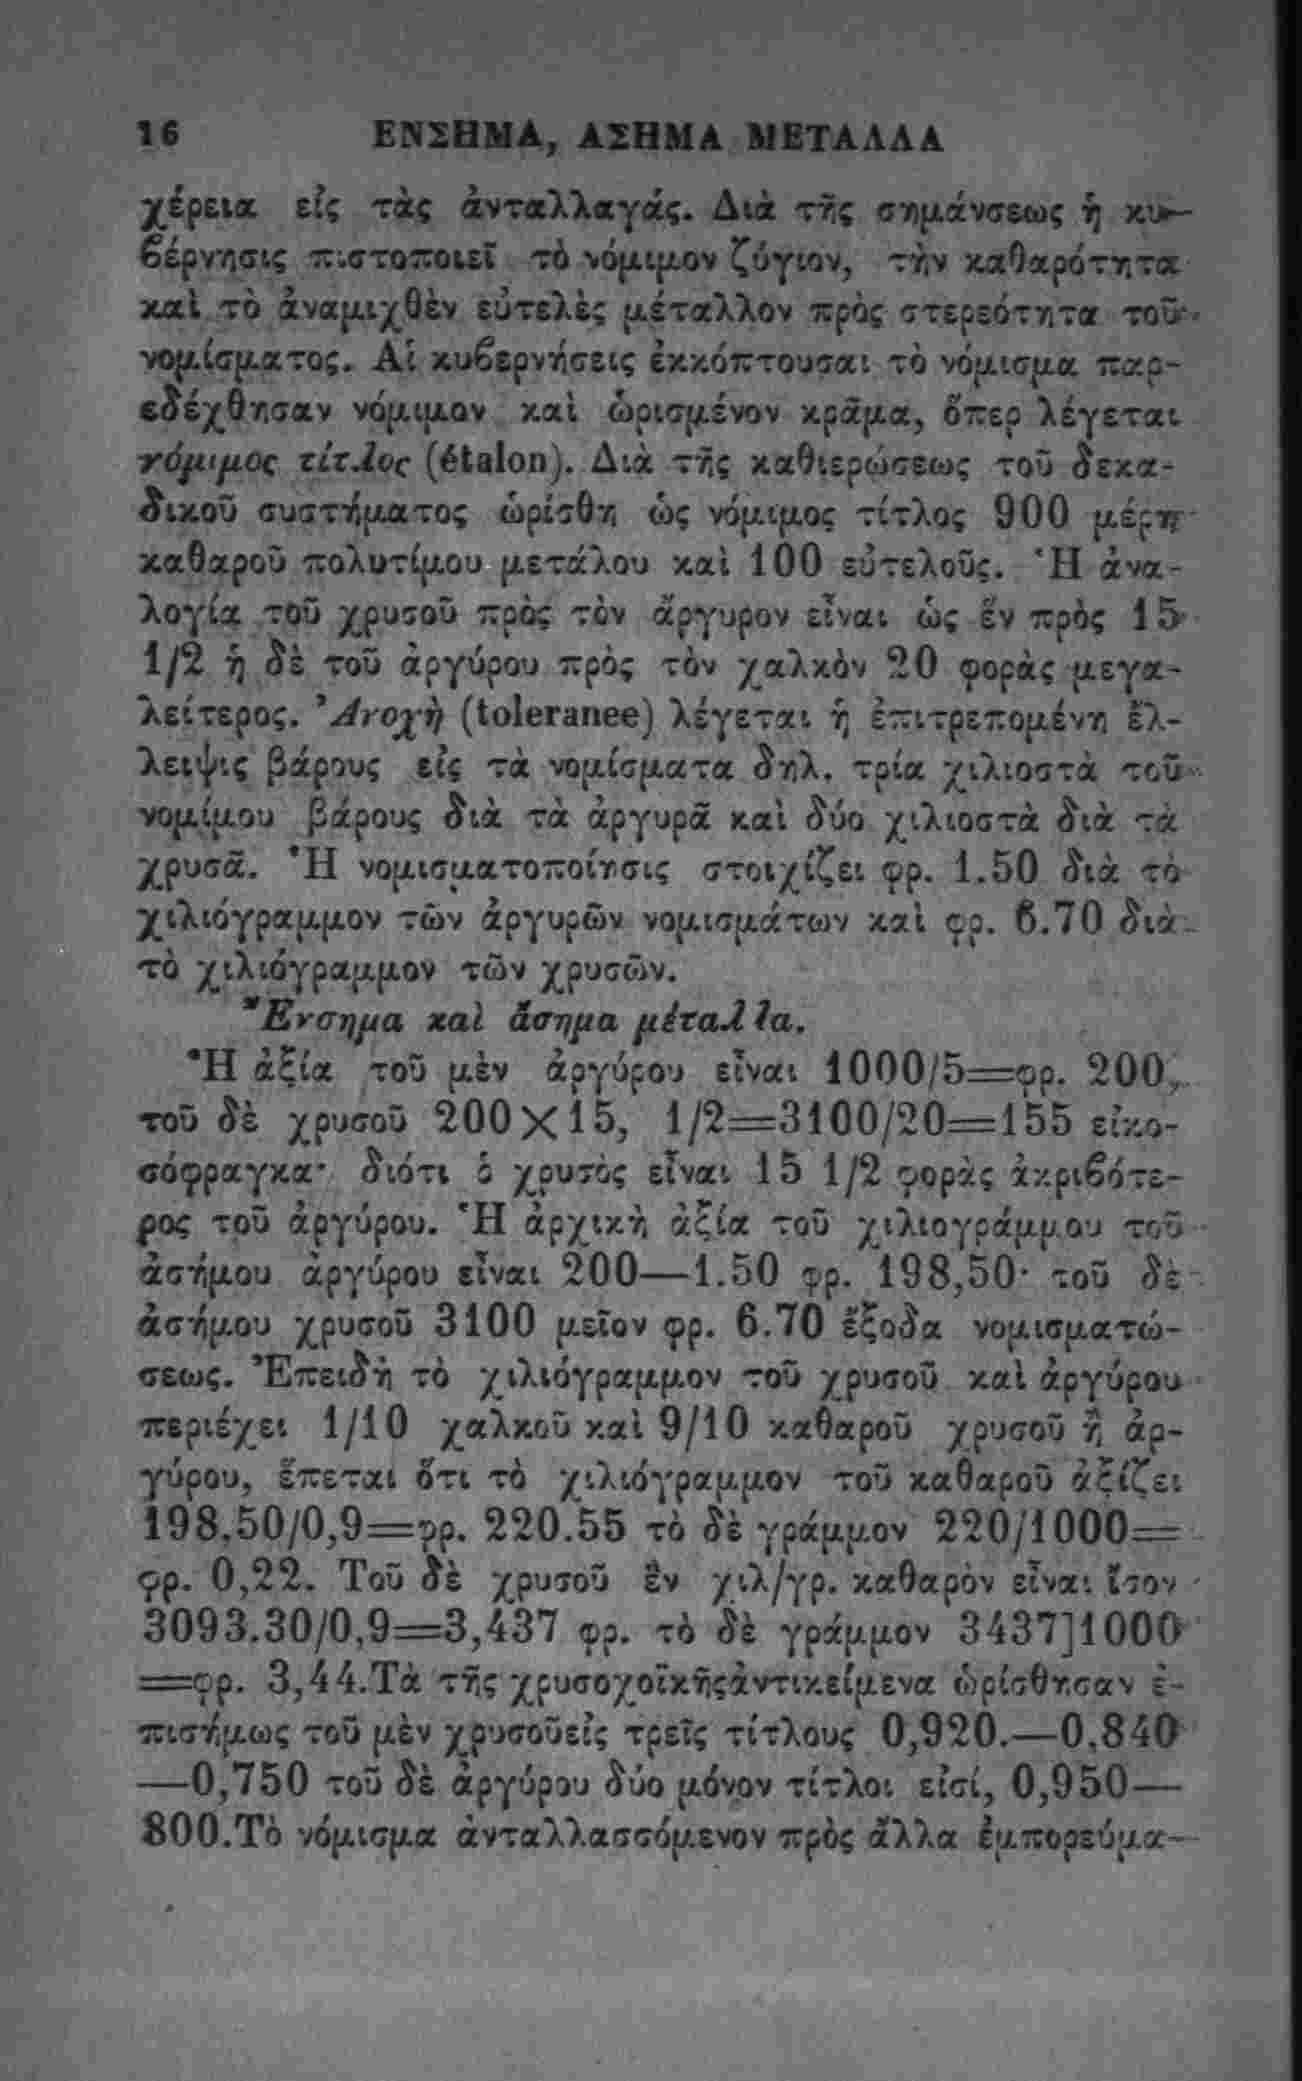 16 ΕΝΣΗΜΑ, ΑΣΗΜΑ ΜΕΤΑΛΛΑ
χέρεια εἰς τὰς ἀνταλλαγάς. Διὰ τῆς σημάνσεως ἡ κυ-
βέρνησις πιστοποιεῖ τὸ νόμιμον ζύγιον, τὴν καθαρότητα
καὶ τὸ ἀναμιχθὲν εὐτελὲς μέταλλον πρὸς στερεότητα τοῦ
νομίσματος. Αἱ κυβερνήσεις ἐκκόπτουσαι τὸ νόμισμα παρ-
εδέχθησαν νόμιμον καὶ ὡρισμένον κρᾶμα, ὅπερ λέγεται
νόμιμος τίτλος (étalon). Διὰ τῆς καθιερώσεως τοῦ δεκα-
δικοῦ συστήματος ὡρίσθη ὡς νόμιμος τίτλος 900 μέρη
καθαροῦ πολυτίμου μετάλου καὶ 100 εὐτελοῦς. Ἡ ἀνα-
λογία τοῦ χρυσοῦ πρὸς τὸν ἄργυρον εἶναι ὡς ἓν πρὸς 15
1/2 ἡ δὲ τοῦ ἀργύρου πρὸς τὸν χαλκὸν 20 φορὰς μεγα-
λείτερος. Ἀνοχὴ (toleranee) λέγεται ἡ ἐπιτρεπομένη ἔλ-
λειψις βάρους εἰς τὰ νομίσματα δηλ. τρία χιλιοστὰ τοῦ
νομίμου βάρους διὰ τὰ ἀργυρᾶ καὶ δύο χιλιοστὰ διὰ τὰ
χρυσᾶ. Ἡ νομισματοποίησις στοιχίζει φρ. 1.50 διὰ τὸ
χιλιόγραμμον τῶν ἀργυρῶν νομισμάτων καὶ φρ. 6.70 διὰ
τὸ χιλιόγραμμον τῶν χρυσῶν.
Ἔνσημα καὶ ἄσημα μέταλλα.
Ἡ ἀξία τοῦ μὲν ἀργύρου εἶναι 1000/5=φρ. 200,
τοῦ δὲ χρυσοῦ 200×15, 1/2=3100/20=155 εἰκο-
σόφραγκα· διότι ὁ χρυσὸς εἶναι 15 1/2 φορὰς ἀκριβότε-
ρος τοῦ ἀργύρου. Ἡ ἀρχικὴ ἀξία τοῦ χιλιογράμμου τοῦ
ἀσήμου ἀργύρου εἶναι 200—1.50 φρ. 198,50· τοῦ δὲ
ἀσήμου χρυσοῦ 3100 μεῖον φρ. 6.70 ἔξοδα νομισματώ-
σεως. Ἐπειδὴ τὸ χιλιόγραμμον τοῦ χρυσοῦ καὶ ἀργύρου
περιέχει 1/10 χαλκοῦ καὶ 9/10 καθαροῦ χρυσοῦ ἢ ἀρ-
γύρου, ἕπεται ὅτι τὸ χιλιόγραμμον τοῦ καθαροῦ ἀξίζει
198.50/0,9=φρ. 220.55 τὸ δὲ γράμμον 220/1000=
φρ. 0,22. Τοῦ δὲ χρυσοῦ ἓν χιλ/γρ. καθαρὸν εἶναι ἴσον
3093.30/0,9=3,437 φρ. τὸ δὲ γράμμον 3437]1000
=φρ. 3,44.Τὰ τῆς χρυσοχοϊκῆςἀντικείμενα ὡρίσθησαν ἐ-
πισήμως τοῦ μὲν χρυσοῦεἰς τρεῖς τίτλους 0,920.—0.840
—0,750 τοῦ δὲ ἀργύρου δύο μόνον τίτλοι εἰσί, 0,950—
800.Τὸ νόμισμα ἀνταλλασσόμενον πρὸς ἄλλα ἐμπορεύμα-